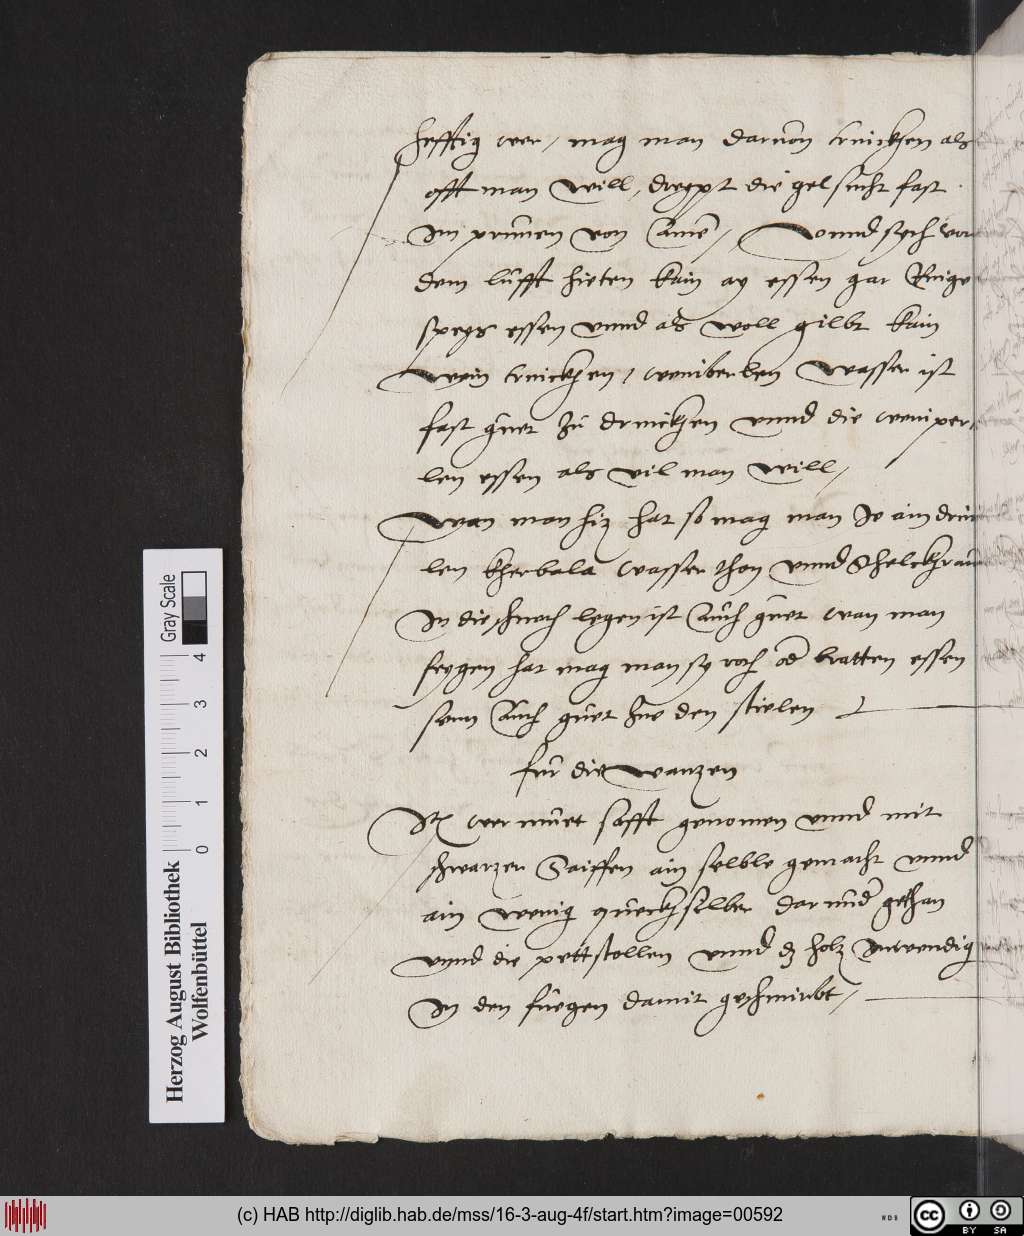 hefftig wer / mag man daruon trinckhen als
offt man will / die gelsucht fast
Im prunen von / Vnnd sych vor
dem lufft hieten kain ay essen gar Ringe
speys essen vnnd als woll gilbt kain
Wein trinckhen / weinberlen Wasser ist
fast guet zu drinckhen vnnd die weinper-
len essen als vil man will /
Wan man hiz hat so mag man In ain
len wasser thon vnnd
In die legen ist auch guet wan man
feygen hat mag man sy roch od bratten essen
senn auch guet zue den stielen
fur die Wanzen
It wermuet safft genomen vnnd mit
schwarzer Saiffen ain selble gemacht vnnd
ain wenig queckhsilber darund gethan
vnnd die pettstollen vnnd dz holz Inwendig
In den fuegen damit geschmirbt /
Gray Scale
0 1 2 3 4
Herzog August Bibliothek
Wolfenbüttel
(c) HAB http://diglib.hab.de/mss/16-3-aug-4f/start.htm?image=00592
WDB
CC BY SA